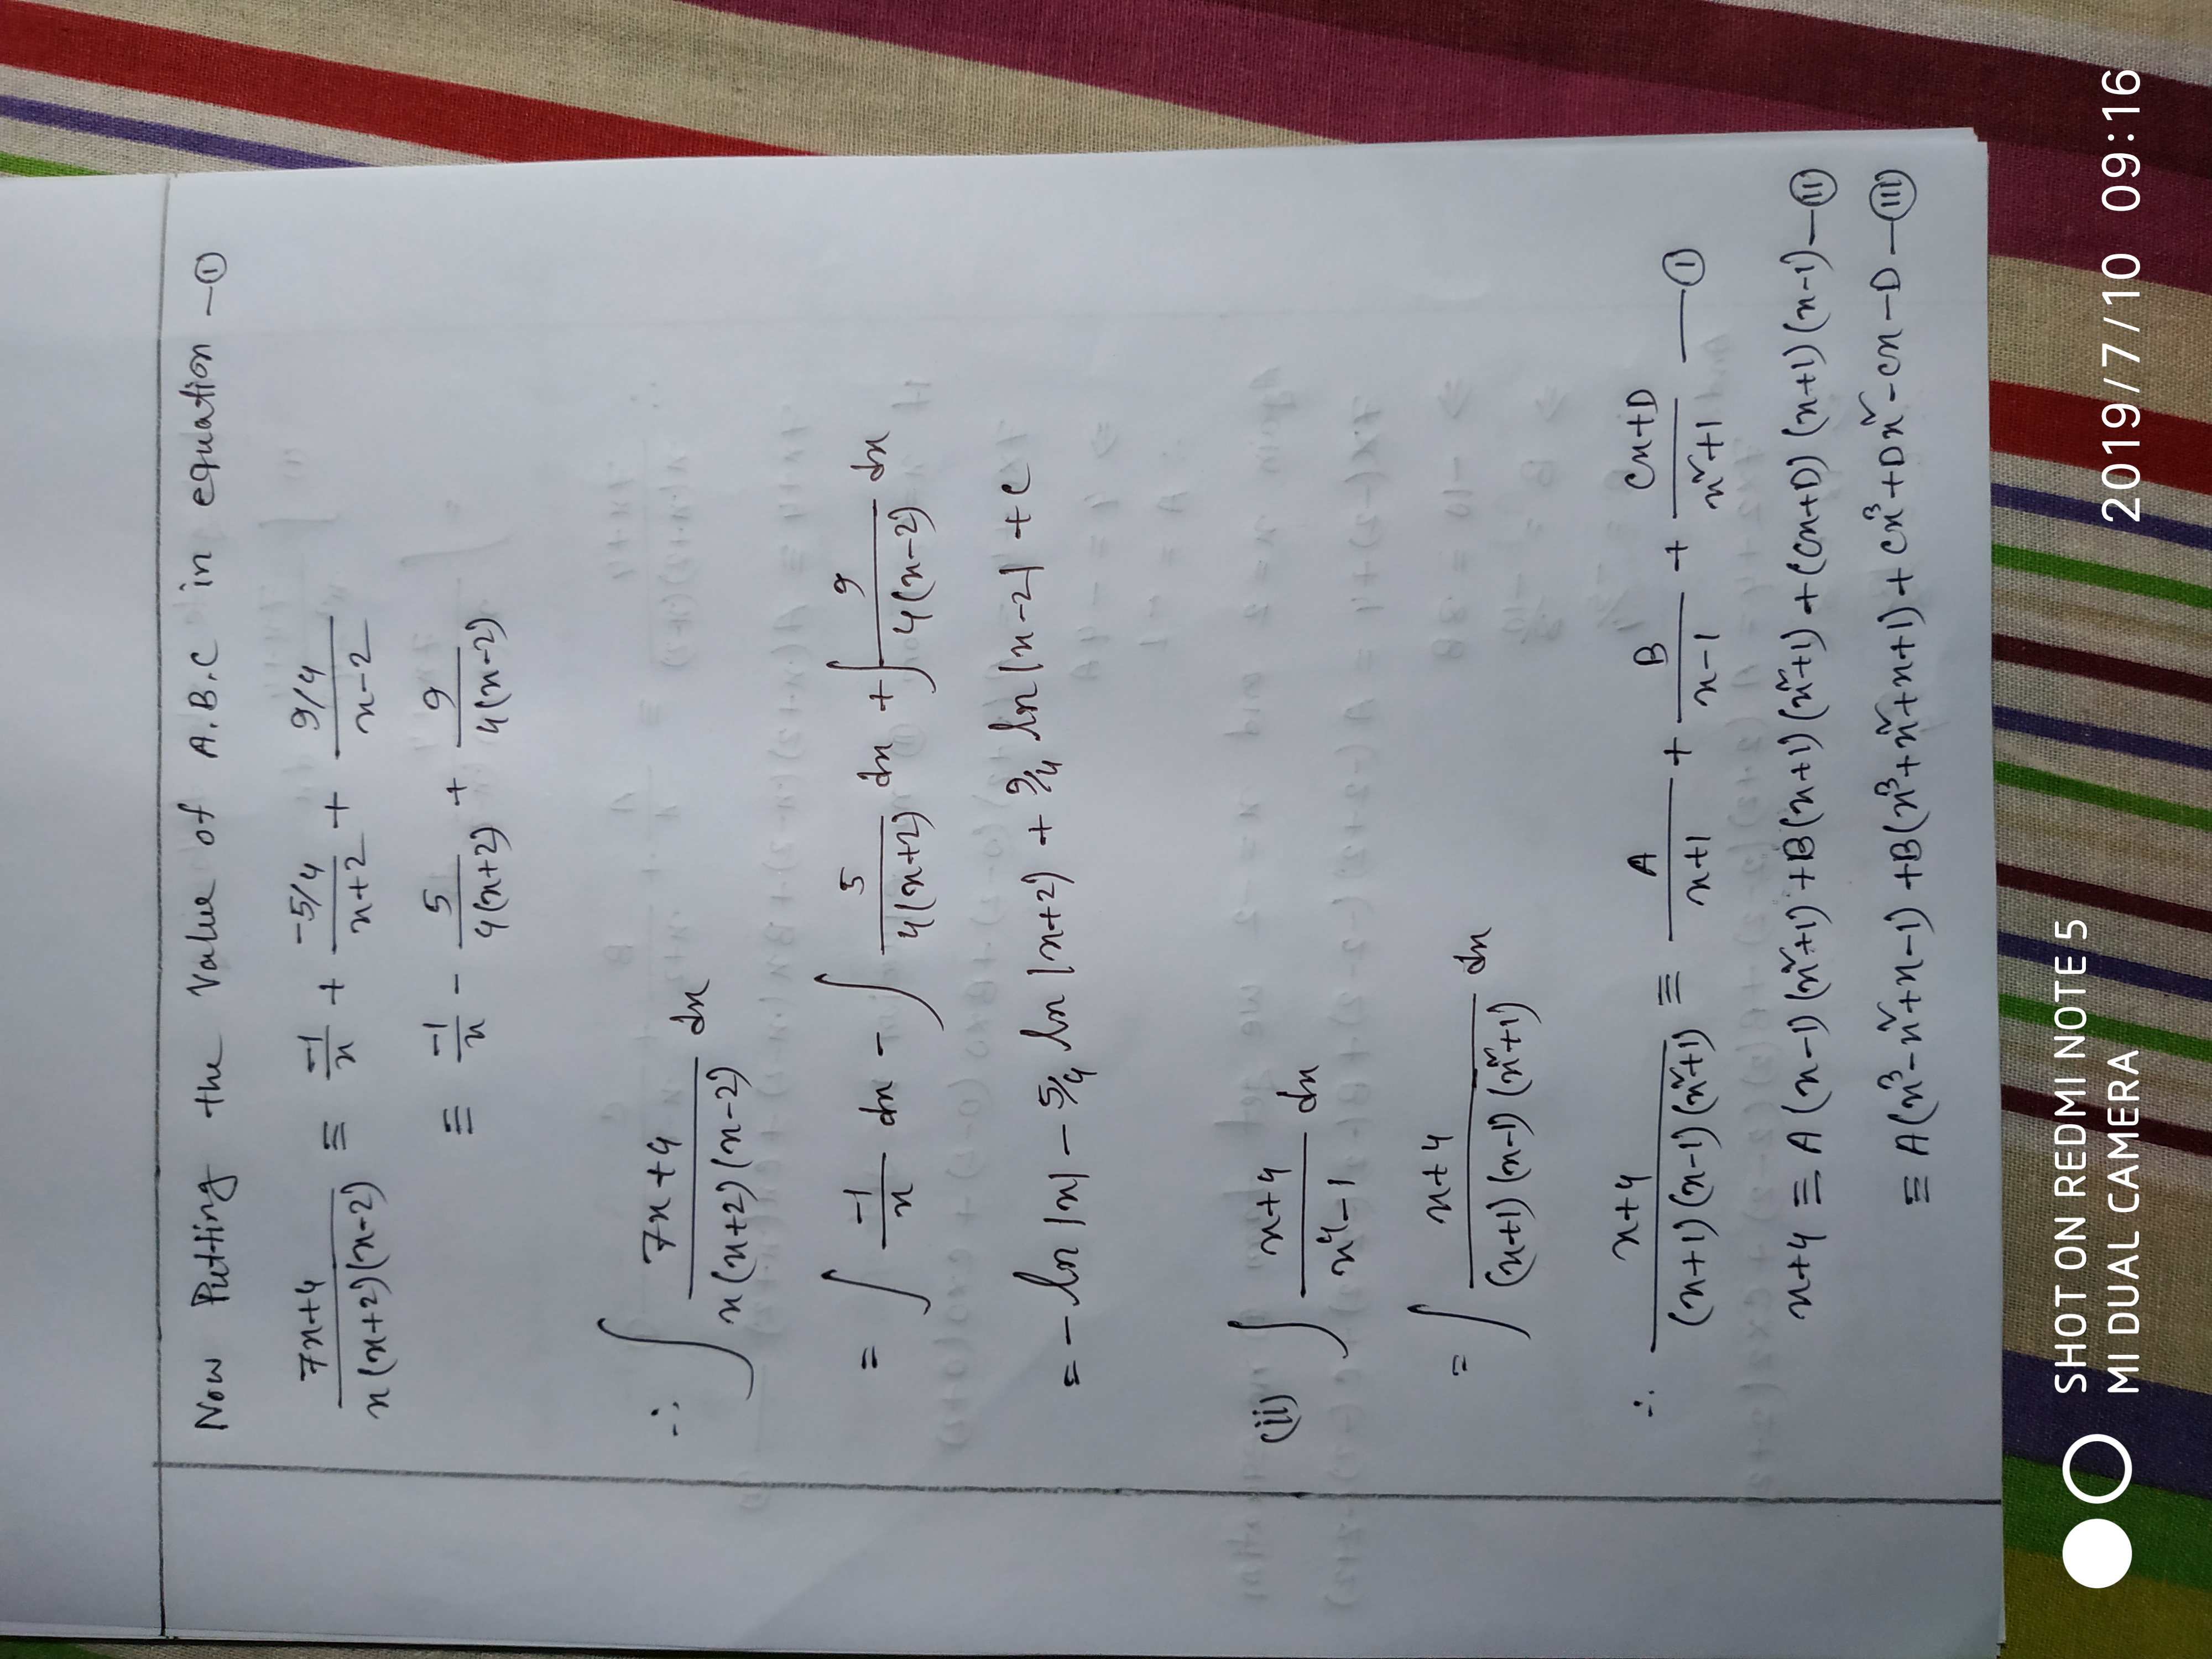 Now Putting the Value of A.B.C in equation -①
7x+4 / x(x+2)(x-2) ≡ -1/x + -5/4 / x+2 + 9/4 / x-2
≡ -1/x - 5 / 4(x+2) + 9 / 4(x-2)
∴ ∫ 7x+4 / x(x+2)(x-2) dx
= ∫ -1/x dx - ∫ 5 / 4(x+2) dx + ∫ 9 / 4(x-2) dx
= - ln |x| - 5/4 ln |x+2) + 9/4 ln |x-2| + c
(ii) ∫ x+4 / x⁴-1 dx
= ∫ x+4 / (x+1)(x-1)(x²+1) dx
∴ x+4 / (x+1)(x-1)(x²+1) ≡ A / x+1 + B / x-1 + Cx+D / x²+1 —①
x+4 ≡ A(x-1)(x²+1)+B(x+1)(x²+1)+(Cx+D)(x+1)(x-1)—⑪
≡ A(x³-x²+x-1)+B(x³+x²+x+1)+Cx³+Dx²-Cx-D—(III)
SHOT ON REDMI NOTE 5
MI DUAL CAMERA
2019/7/10 09:16